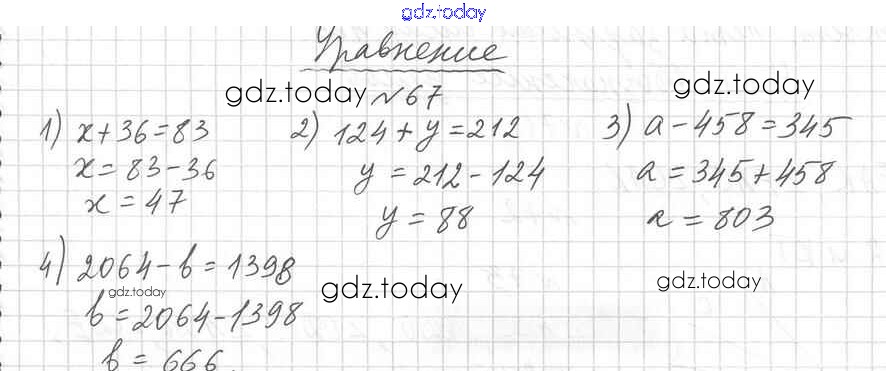 gdz.today
Уравнение
gdz.today №67 gdz.today
1) x+36=83
x=83-36
x=47
2) 124+y=212
y=212-124
y=88
3) a-458=345
a=345+458
a=803
4) 2064-b=1398
gdz.today
b=2064-1398
b=666
gdz.today
gdz.today